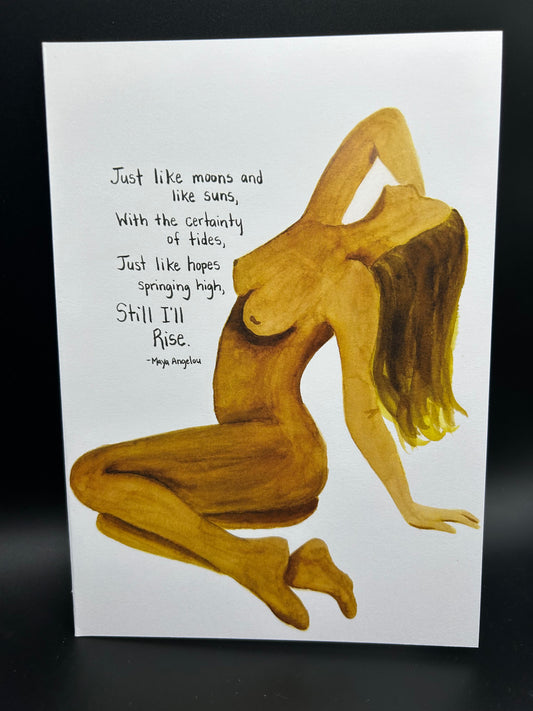 Just like moons and
like suns,
With the certainty
of tides,
Just like hopes
springing high,
Still I'll
Rise.
-Maya Angelou